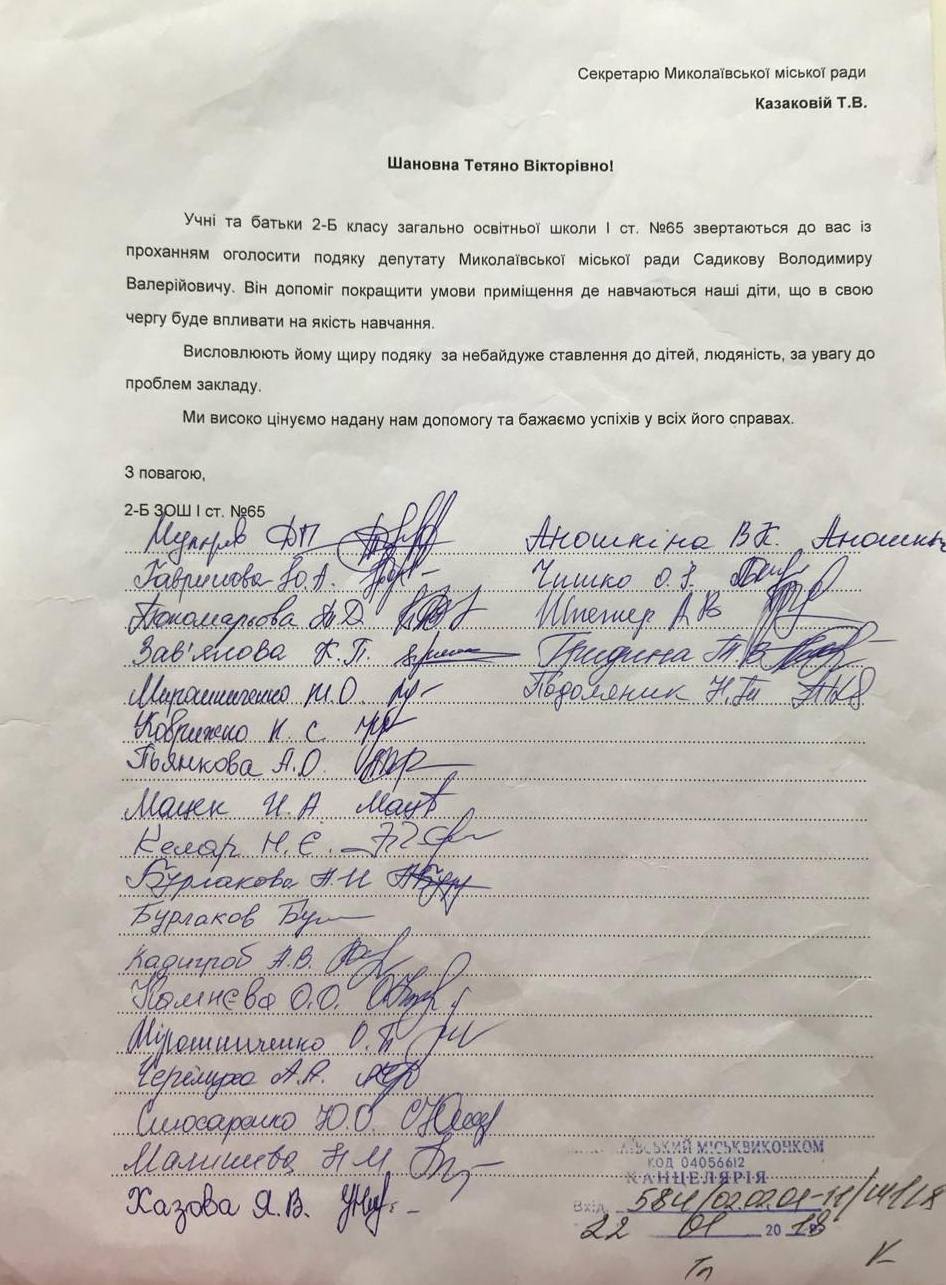 Секретарю Миколаївської міської ради
Казаковій Т.В.
Шановна Тетяно Вікторівно!
Учні та батьки 2-Б класу загально освітньої школи І ст. №65 звертаються до вас із
проханням оголосити подяку депутату Миколаївської міської ради Садикову Володимиру
Валерійовичу. Він допоміг покращити умови приміщення де навчаються наші діти, що в свою
чергу буде впливати на якість навчання.
Висловлюють йому щиру подяку за небайдуже ставлення до дітей, людяність, за увагу до
проблем закладу.
Ми високо цінуємо надану нам допомогу та бажаємо успіхів у всіх його справах.
З повагою,
2-Б ЗОШ І ст. №65
Аношкіна В К.
Гаврилова Ю.А. Чишко О.
Пономарьова
Зав'ялова К.П. Гридина Т.В
Мирошниченко Подоляник Н.
Коврижко К. С.
П'янкова А.О.
Мацек И.А
Келар Н.Є.
Бурлакова
Бурлаков
Кадигроб А.В.
Камнєва О.О.
Мірошниченко О.
Черемуха А.А.
Слюсаренко Ю.О.
Малишева Н М.
Хазова Я.В.
МІСЬКВИКОНКОМ
КОД 04056612
КАНЦЕЛЯРІЯ
Вхід.
22 01 20 18